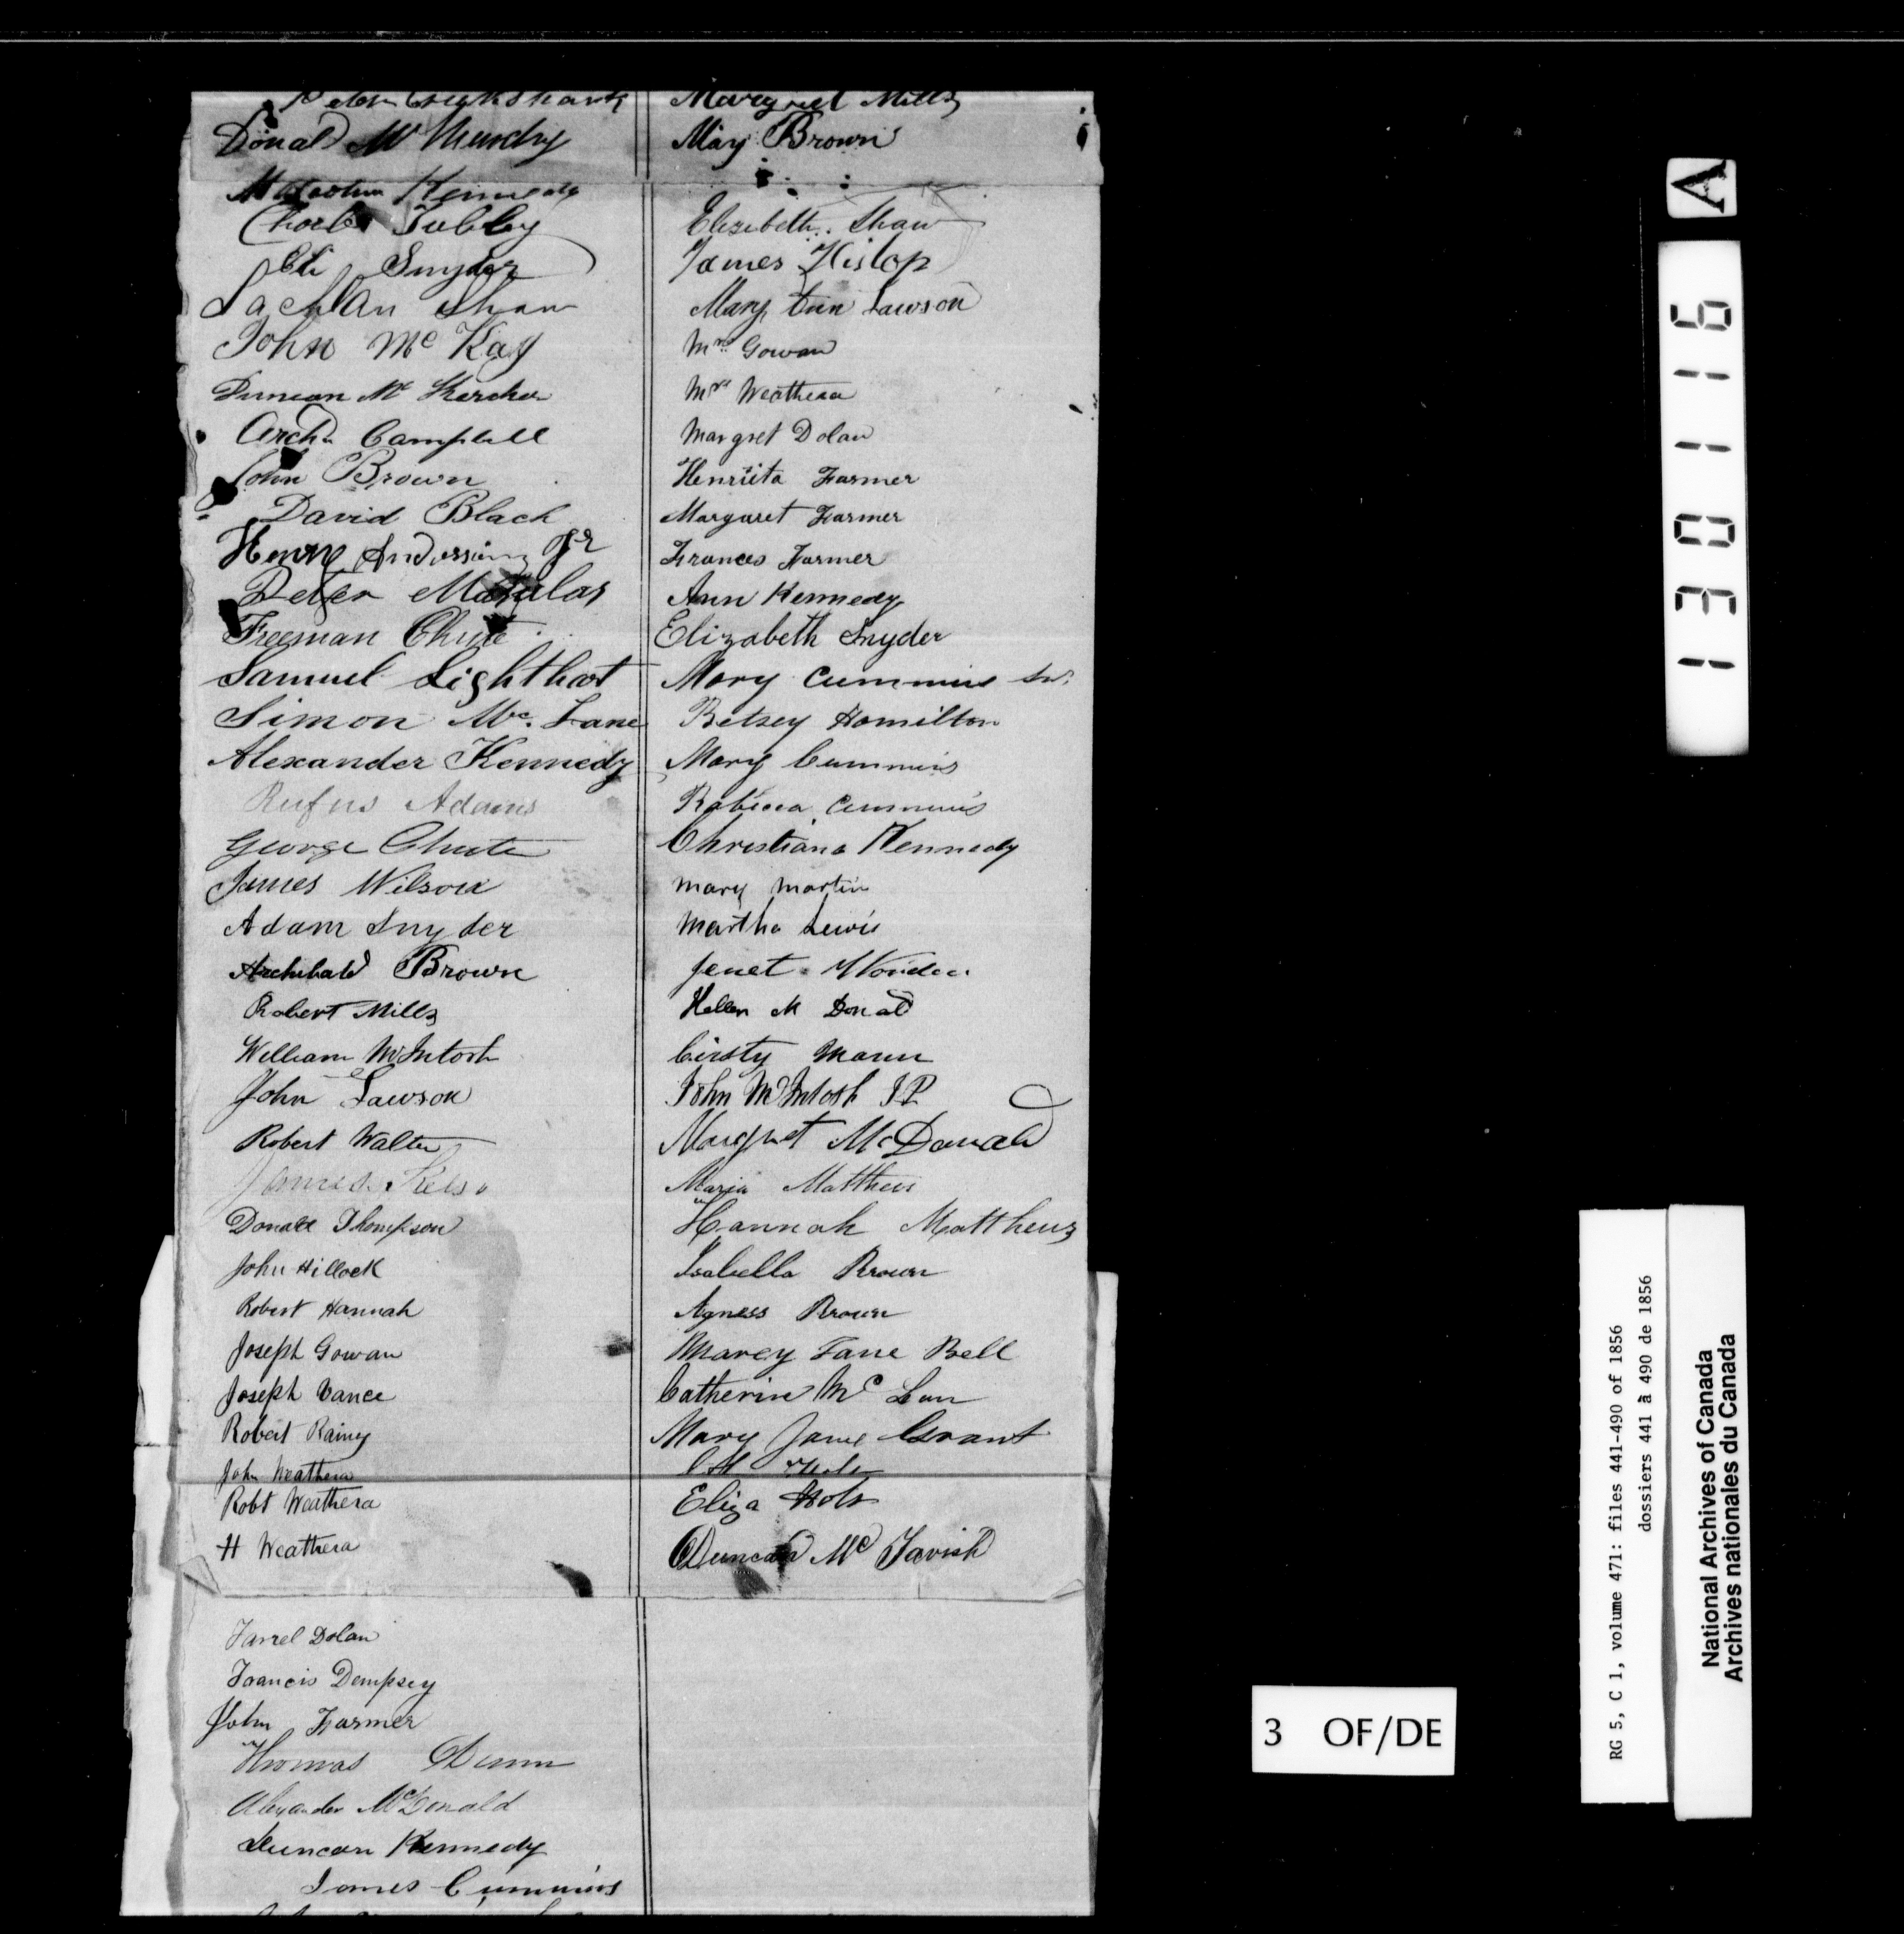 Peter Cruikshank
Donald McMurchy
Malcolm Kennedy
Tubby
Eli Snyder
Lachlan Shaw
John Mc Kay
Duncan Mc Kercher
Archd Campbell
John Brown
David Black
Henry Anderson Jr
Peter
Freeman Chute
Samuel Lighthart
Simon Mc. Lane
Alexander Kennedy
Rufus Adams
George Chute
James Wilson
Adam Snyder
Archibald Brown
Robert Mills
William McIntosh
John Lawson
Robert Walter
James Kelso
Donald Thompson
John Hillock
Robert Hannah
Joseph Gowan
Joseph Vance
Robert Rainey
John Weathera
Robt Weathera
H Weathera
Farrel Dolan
Francis Dempsey
John Farmer
Thomas Dunn
Alexander McDonald
Duncan Kennedy
James Cummins
Margret Mills
Mary Brown
Elizebeth Shaw
James Hislop
Mary Ann Lawson
Mrs Gowan
Mrs Weathera
Margret Dolan
Henriita Farmer
Margaret Farmer
Frances Farmer
Ann Kennedy
Elizabeth Snyder
Mary Cummins Sr.
Betsey Hamilton
Mary Cummins
Rabecca Cummins
Christiana Kennedy
Mary Martin
Martha Lewis
Jenet
Hellen Mc Donald
Cirsty Mann
John McIntosh J P
Margret McDonald
Maria Matthews
Hannah Matthews
Isabella Brown
Agness Brown
Marey Jane Bell
Catherine Mc Lean
Mary Jane Grant
Eliza
Duncan Mc Tavish
A
130116
3 OF/DE
RG 5, C 1, volume 471: files 441-490 of 1856
dossiers 441 à 490 de 1856
National Archives of Canada
Archives nationales du Canada